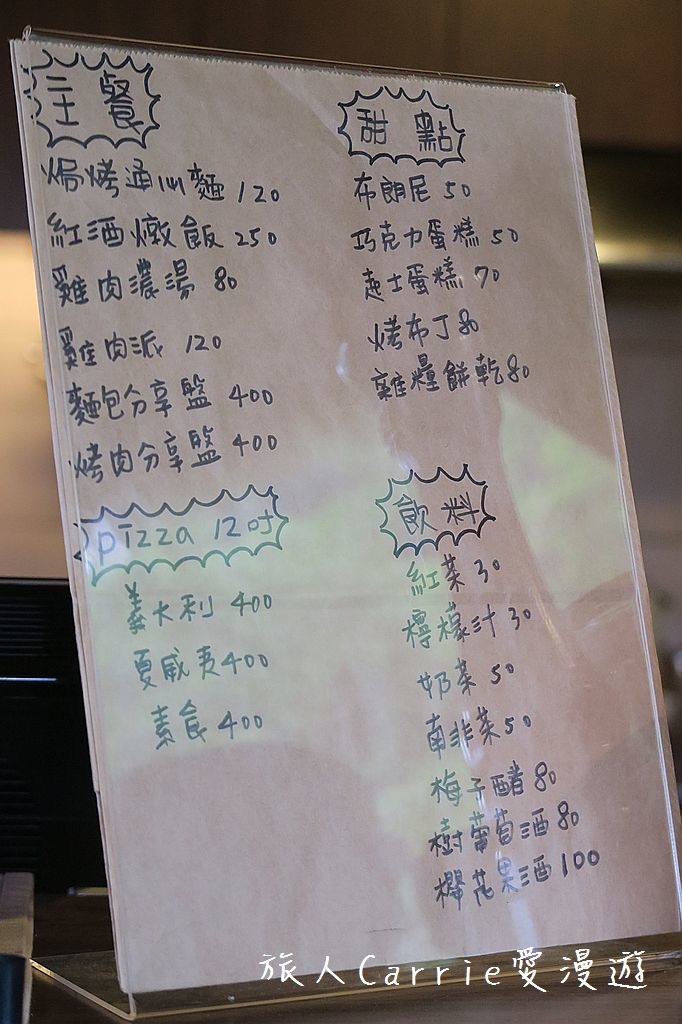 主餐
焗烤通心麵 120
紅酒燉飯 250
雞肉濃湯 80
雞肉派 120
麵包分享盤 400
烤肉分享盤 400
pizza 12吋
義大利 400
夏威夷 400
素食 400
甜點
布朗尼 50
巧克力蛋糕 50
起士蛋糕 70
烤布丁 80
雜糧餅乾 80
飲料
紅茶 30
檸檬汁 30
奶茶 50
南非茶 50
梅子醋 80
樹葡萄酒 80
櫻花果酒 100
旅人Carrie愛漫遊